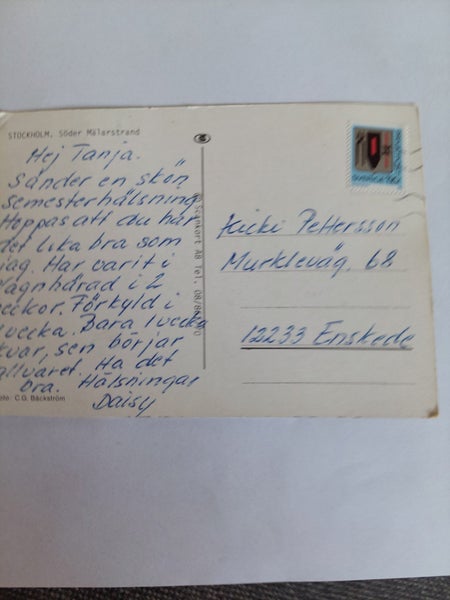 STOCKHOLM, Söder Mälarstrand
Hej Tanja.
Sänder en skön
Semesterhälsning
Hoppas att du har
det lika bra som
jag. Har varit i
i 2
veckor. Förkyld i
1 vecka. Bara 1 vecka
kvar, sen börjar
allvaret. Ha det
bra. Hälsningar
Daisy
C.G. Bäckström
AB Tel. 08/
SVERIGE
Kicki Pettersson
Murkleväg. 68
12233 Enskede